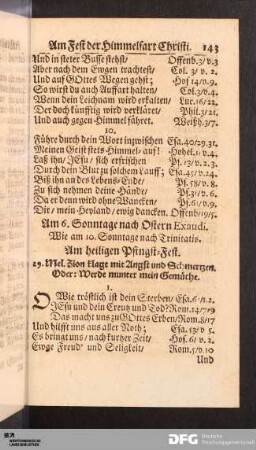 Am Fest der Himmelfart Christi. 143
Und in steter Busse stehst/ Offenb. 3/ v.3
Aber nach dem Ewgen trachtest/ Col. 3/ v. 2.
Und auf GOttes Wegen gehst; Hos 14/ v.9.
So wirst du auch Auffart halten/ Col.3/v.4.
Wenn dein Leichnam wird erkalten/ Luc.16/22.
Der doch künfftig wird verklåret/ Phil.3/21.
Und auch gegen Himmel fåhret. Weißh.3/7.
10.
Führe durch dein Wort inzwischen Esa.40/29.31.
Meinen Geist stets Himmel-auf! Hohel.1/ v.4.
Laß ihn/ JEsu/ sich erfrischen Ps. 13/ v.2.3.
Durch dein Blut zu solchem Lauff; Esa.45/ v.24.
Biß ihn an des Lebens-Ende/ Ps. 58/ v.8.
Zu sich nehmen deine Hånde/ Ps.31/ v.6.
Da er denn wird ohne Wancken/ Ps.61/ v.9.
Dir/ mein Heyland/ ewig dancken. Offenb/19/5.
Am 6. Sonntage nach Ostern Exaudi.
Wie am 10. Sonntage nach Trinitatis.
Am heiligen Pfingst-Fest.
29. Mel. Zion klagt mit Angst und Schmertzen.
Oder: Werde munter mein Gemüthe.
1.
O Wie tröstlich ist dein Sterben/ Esa. 6/ v.2.
JEsu und dein Creutz und Tod? Rom.14/7.9
Das macht uns zu GOttes Erben/ Rom. 8/17
Und hilfft uns aus aller Noth; Esa. 53/ v 5.
Es bringt uns/ nach kurtzer Zeit/ Hos. 6/ v. 2.
Ewge Freud' und Seligkeit/ Rom.5/v.10
Und
DFG Deutsche
Forschungsgemeinschaft